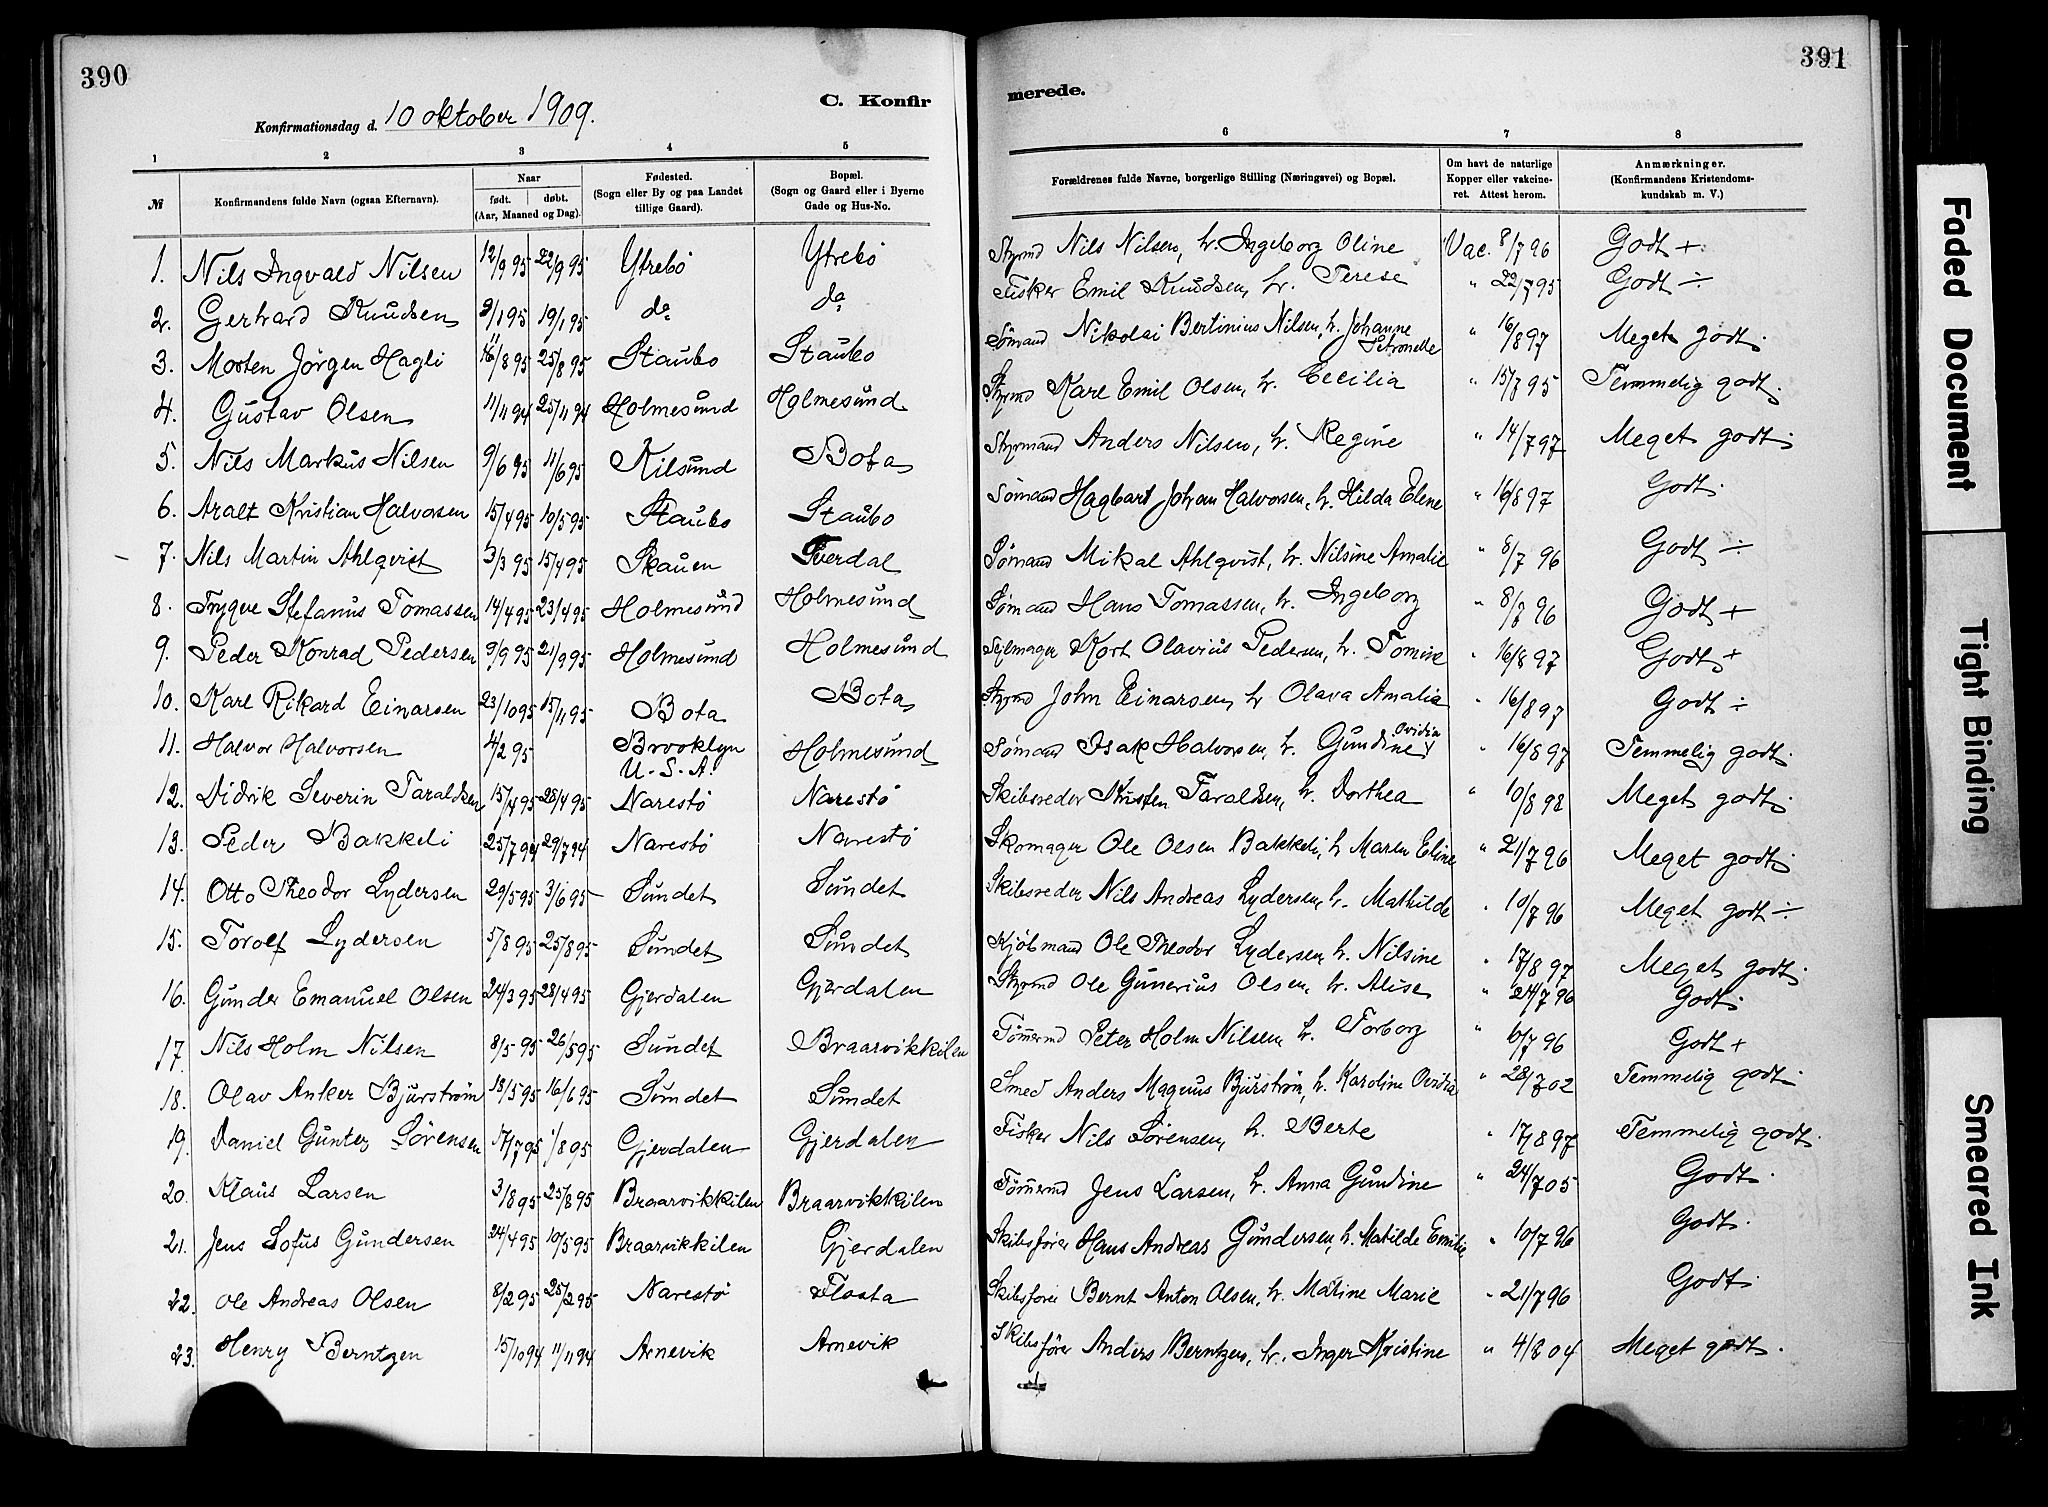 390
391
Konfirmationsdag d. 10 oktober 1909.
C. Konfir
merede.
1 2 3 4 5 6 7 8
№ Konfirmandens fulde Navn (ogsaa Efternavn). Naar født. døbt. (Aar, Maaned og Dag). Fødested. (Sogn eller By og paa Landet tillige Gaard). Bopæl. (Sogn og Gaard eller i Byerne Gade og Hus-No. Forældrenes fulde Navne, borgerlige Stilling (Næringsvei) og Bopæl. Om havt de naturlige Kopper eller vakcineret. Attest herom. Anmærkninger. (Konfirmandens Kristendomskundskab m. V.)
1. Nils Ingvald Nilsen 12/9 95 22/9 95 Ytrebö Ytrebö Styrmd Nils Nilsen, h. Ingeborg Oline Vac. 8/7 96 Godt +
2. Gerhard Knudsen /1 95 19/1 95 do do Fisker Emil Knudsen, h. Terese " 22/7 95 Godt ÷
3. Morten Jörgen Hagli 16/8 95 25/8 95 Staubo Staubo Sömand Nikolai Bertinius Nilsen, h. Johanne Petronelle " 16/8 97 Meget godt.
4. Gustav Olsen 11/11 94 25/11 94 Holmesund Holmesund Styrmd Karl Emil Olsen, h. Cecilia " 15/7 95 Temmelig godt.
5. Nils Markus Nilsen 9/6 95 11/6 95 Kilsund Bota Styrmand Anders Nilsen, h. Regine " 14/7 97 Meget godt.
6. Aralt Kristian Halvorsen 15/4 95 10/5 95 Staubo Staubo Sömand Hagbart Johan Halvorsen, h. Hilda Elene " 16/8 97 Godt.
7. Nils Martin Ahlqvist 3/3 95 15/4 95 Skauen Sverdal Sömand Mikal Ahlqvist, h. Nilsine Amalie " 8/7 96 Godt ÷
8. Trygve Stefanus Tomassen 14/4 95 23/4 95 Holmesund Holmesund Sömand Hans Tomassen, h. Ingeborg " 8/7 96 Godt +
9. Peder Konrad Pedersen 9/9 95 21/9 95 Holmesund Holmesund Sejlmager Kort Olavius Pedersen, h. Tomine " 16/8 97 Godt +
10. Karl Rikard Einarsen 23/10 95 15/11 95 Bota Bota Styrmd John Einarsen, h Olava Amalia " 16/8 97 Godt ÷
11. Halvor Halvorsen 4/2 95 Brooklyn U.S.A. Holmesund Sömand Isak Halvorsen, h. Gundine Ovidia " 16/8 97 Temmelig godt.
12. Didrik Severin Taraldsen 15/4 95 28/4 95 Narestö Narestö Skibsreder Kristen Taraldsen, h. Dorthea " 10/8 98 Meget godt.
13. Peder Bakkeli 25/7 94 29/7 94 Narestö Narestö Skomager Ole Olsen Bakkeli, h Maren Eline " 21/7 96 Meget godt.
14. Otto Theodor Lydersen 29/5 95 3/6 95 Sundet Sundet Skibsreder Nils Andreas Lydersen, h. Mathilde " 10/7 96 Meget godt ÷
15. Torolf Lydersen 5/8 95 25/8 95 Sundet Sundet Kjöbmand Ole Theodor Lydersen, h. Nilsine " 17/8 97 Meget godt.
16. Gunder Emanuel Olsen 24/3 95 28/4 95 Gjerdalen Gjerdalen Styrmd Ole Gunerius Olsen, h. Alise " 24/7 96 Godt.
17. Nils Holm Nilsen 8/5 95 26/5 95 Sundet Braarvikkilen Tömermd Peter Holm Nilsen, h. Torborg " 10/7 96 Godt +
18. Olav Anker Bjurström 18/5 95 16/6 95 Sundet Sundet Smed Anders Magnus Bjurström, h. Karoline Ovidia " 28/7 02 Temmelig godt.
19. Daniel Günter Sörensen 17/7 95 1/8 95 Gjerdalen Gjerdalen Fisker Nils Sörensen, h. Berte " 17/8 97 Temmelig godt.
20. Klaus Larsen 3/8 95 25/8 95 Braarvikkilen Braarvikkilen Tömermd Jens Larsen, h. Anna Gundine " 24/7 05 Godt.
21. Jens Sofus Gundersen 24/4 95 10/5 95 Braarvikkilen Gjerdalen Skibsförer Hans Andreas Gundersen, h. Matilde Emilie " 10/7 96 Godt.
22. Ole Andreas Olsen 8/2 95 25/2 95 Narestö Flosta Skibsförer Bernt Anton Olsen, h. Matine Marie " 21/7 96 Godt.
23. Henry Berntzen 15/10 94 11/11 94 Arnevik Arnevik Skibsförer Anders Berntzen, h. Inger Kristine " 4/8 04 Meget godt.
Faded Document
Tight Binding
Smeared Ink